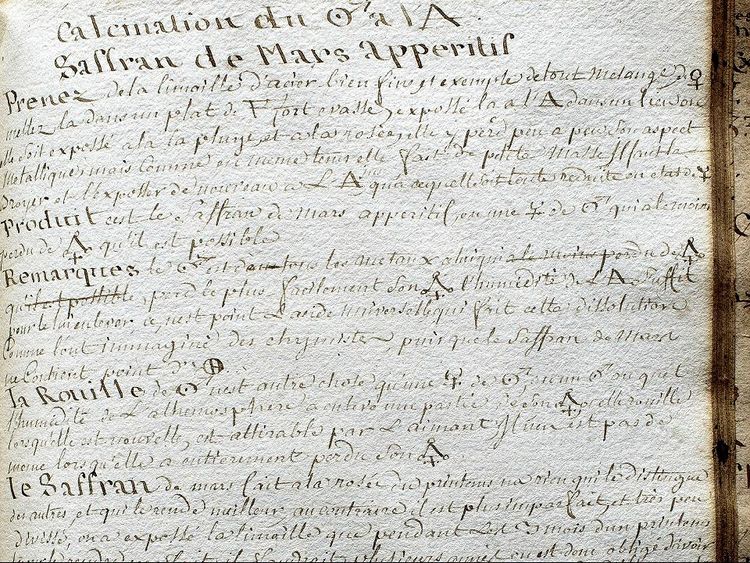 Calcination du ♂ a l'🜁
Saffran de Mars apperitif
Prenez de la limaille d'acier bien fine et exempte de tout melange, de ♀
mettez la dans un plat de fort evasé, exposé la a l'🜁 dans un lieu ou
elle soit exposée a la pluye et a la rosée, elle y perd peu a peu son aspect
metallique, mais comme en meme tems elle fait de petite masse il faut la
broyer et l'exposer de nouveau a L'🜁 jusqu'a ce qu'elle soit toute reduite en etat de
Produit cest le Saffran de mars apperitif, ou une de ♂ qui a le moins
perdu de 🜍 qu'il est possible
Remarques le ♂ est de tous les metaux celui qui a le moins perdu de 🜍
qu'il est possible perd le plus facilement son 🜍 l'humidité de L'🜁 suffit
pour le lui enlever, ce n'est point L'acide universelle qui fait cette dissolution
Comme lont immaginé des chymistes, puisque le Saffran de Mars
ne Contient point d'🜕
la Rouille de ♂ n'est autre chose qu'une de ♂ ou un ♂ au quel
l'humidité de L'athmosphere a enlevé une partie de son 🜍, cette rouille
lorsqu'elle est nouvelle, est attirable par L'aimant Il n'en est pas de
meme lorsqu'elle a entierement perdu son 🜍
le Saffran de mars fait a la rosée du printems na rien qui le distingue
des autres, et qui le rende meilleur, au contraire il est plus imparfait, et tres peu
divisé, on a exposé la limaille que pendant Les 3 mois d'un printems
il faudroit plusieurs années on est donc obligé d'avoir